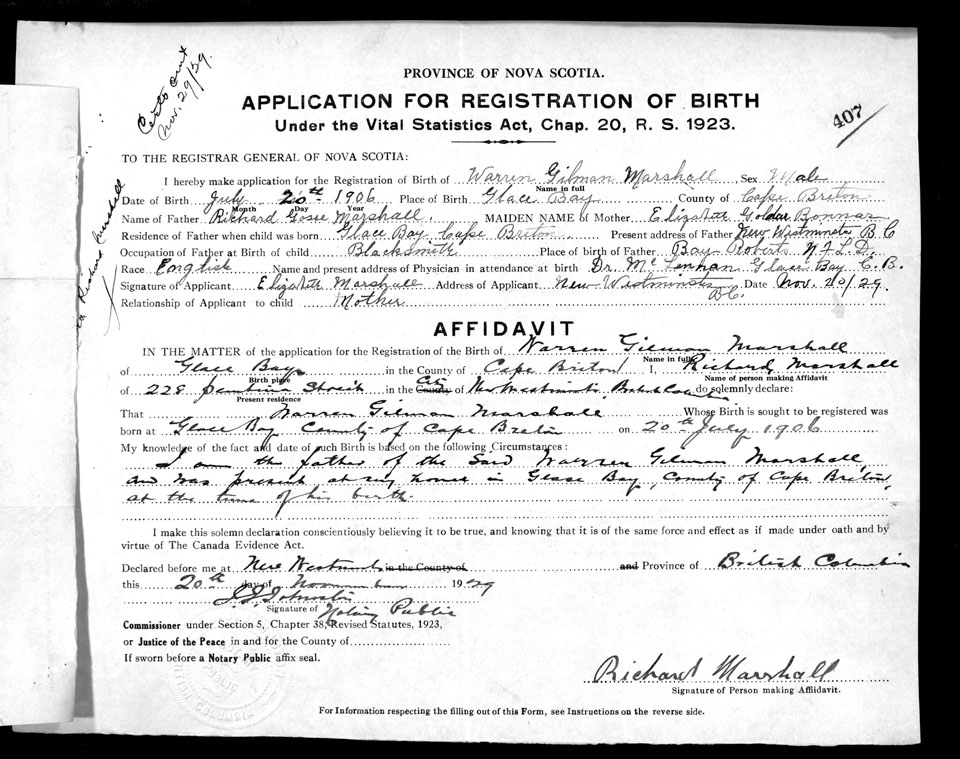 Certs Out
Nov. 29/29.
407
PROVINCE OF NOVA SCOTIA.
APPLICATION FOR REGISTRATION OF BIRTH
Under the Vital Statistics Act, Chap. 20, R. S. 1923.
TO THE REGISTRAR GENERAL OF NOVA SCOTIA:
I hereby make application for the Registration of Birth of Warren Gilman Marshall Sex Male
Name in full
Date of Birth July 20th 1906 Place of Birth Glace Bay County of Cape Breton
Month Day Year
Name of Father Richard Gosse Marshall, MAIDEN NAME of Mother Elizabeth Goldar Bonnar
Residence of Father when child was born Glace Bay Cape Breton Present address of Father New Westminster B C
Occupation of Father at Birth of child Blacksmith Place of birth of Father Bay Roberts N F L D.
Race English Name and present address of Physician in attendance at birth Dr. Glace Bay C. B.
Signature of Applicant Elizabeth Marshall Address of Applicant New Westminster B C. Date Nov. 20/29.
Relationship of Applicant to child Mother
AFFIDAVIT
IN THE MATTER of the application for the Registration of the Birth of Warren Gilman Marshall
Name in full
of Glace Bay in the County of Cape Breton I, Richard Marshall
Birth place Name of person making Affidavit
of 228 Street in the County City of New Westminster, British Columbia do solemnly declare:
Present residence
That Warren Gilman Marshall Whose Birth is sought to be registered was
born at Glace Bay County of Cape Breton on 20th July 1906
My knowledge of the fact and date of such Birth is based on the following Circumstances:
I am the father of the said Warren Gilman Marshall
and was present at my home in Glace Bay, County of Cape Breton,
at the time of his birth.
I make this solemn declaration conscientiously believing it to be true, and knowing that it is of the same force and effect as if made under oath and by
virtue of The Canada Evidence Act.
Declared before me at New Westminster in the County of and Province of British Columbia
this 20th day of November 1929
Signature of Notary Public
Commissioner under Section 5, Chapter 38, Revised Statutes, 1923,
or Justice of the Peace in and for the County of
If sworn before a Notary Public affix seal.
Richard Marshall
Signature of Person making Affiidavit.
For Information respecting the filling out of this Form, see Instructions on the reverse side.